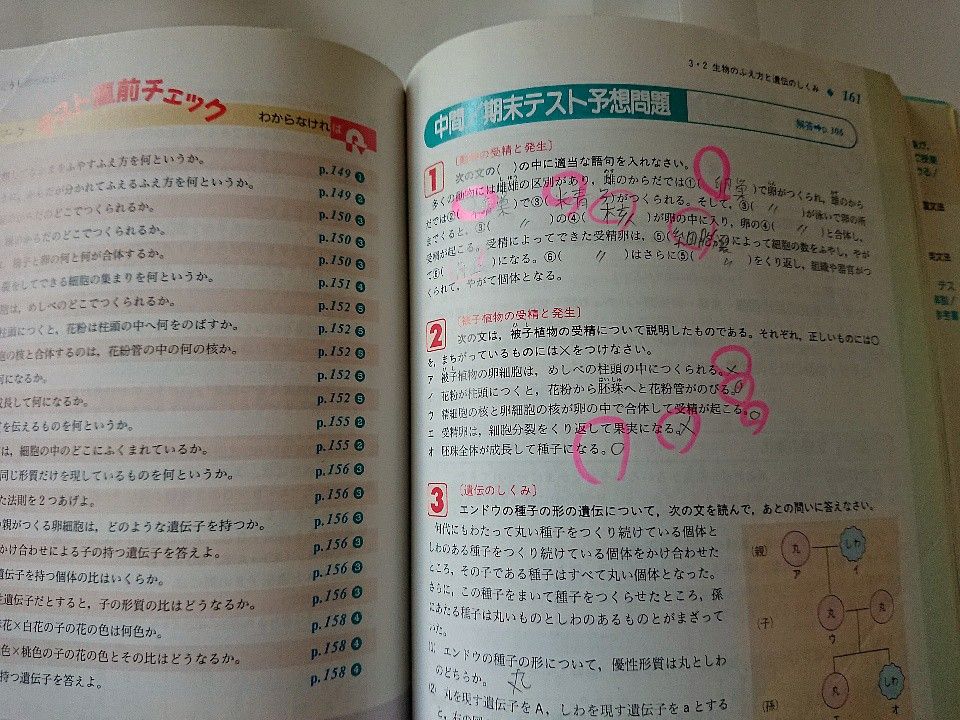 前チェック
わからなければ
ふやすふえ方を何というか。
p.149 1
だが分かれてふえるふえ方を何というか。
p.149 2
らだのどこでつくられるか。
p.150 3
のからだのどこでつくられるか。
p.150 3
精子と卵の何と何が合体するか。
p.150 3
をしてできる細胞の集まりを何というか。
p.151 4
胞は、めしべのどこでつくられるか。
p.152 5
柱頭につくと、花粉は柱頭の中へ何をのばすか。
p.152 5
胞の核と合体するのは、花粉管の中の何の核か。
p.152 5
何になるか。
p.152 5
成長して何になるか。
p.152 5
を伝えるものを何というか。
p.155 2
は、細胞の中のどこにふくまれているか。
p.155 2
同じ形質だけを現しているものを何というか。
p.156 3
た法則を2つあげよ。
p.156 3
の親がつくる卵細胞は、どのような遺伝子を持つか。
p.156 3
かけ合わせによる子の持つ遺伝子を答えよ。
p.156 3
遺伝子を持つ個体の比はいくらか。
p.156 3
性遺伝子だとすると、子の形質の比はどうなるか。
p.156 3
花×白花の子の花の色は何色か。
p.158 4
色×桃色の子の花の色とその比はどうなるか。
p.158 4
持つ遺伝子を答えよ。
p.158 4
3・2 生物のふえ方と遺伝のしくみ ◆ 161
中間・期末テスト予想問題
解答➡p.306
1 〔動物の受精と発生〕
次の文の( )の中に適当な語句を入れなさい。
多くの動物には雌雄の区別があり、雌のからだでは①(卵巣)で卵がつくられ、雄のから
だでは②( 巣)で③(精子)がつくられる。そして、③( 〃 )が泳いで卵の所
までくると、③( 〃 )の④(核)が卵の中に入り、卵の④( 〃 )と合体し、
受精が起こる。受精によってできた受精卵は、⑤(細胞分裂)によって細胞の数をふやし、やが
て⑥( )になる。⑥( 〃 )はさらに⑤( 〃 )をくり返し、組織や器官がつ
くられて、やがて個体となる。
2 〔被子植物の受精と発生〕
次の文は、被子植物の受精について説明したものである。それぞれ、正しいものには○
を、まちがっているものには×をつけなさい。
ア 被子植物の卵細胞は、めしべの柱頭の中につくられる。×
イ 花粉が柱頭につくと、花粉から胚珠へと花粉管がのびる。○
ウ 精細胞の核と卵細胞の核が卵の中で合体して受精が起こる。○
エ 受精卵は、細胞分裂をくり返して果実になる。×
オ 胚珠全体が成長して種子になる。○
3 〔遺伝のしくみ〕
エンドウの種子の形の遺伝について、次の文を読んで、あとの問いに答えなさい。
何代にもわたって丸い種子をつくり続けている個体と
しわのある種子をつくり続けている個体をかけ合わせた
ところ、その子である種子はすべて丸い個体となった。
さらに、この種子をまいて種子をつくらせたところ、孫
にあたる種子は丸いものとしわのあるものとがまざって
いた。
(1) エンドウの種子の形について、優性形質は丸としわ
のどちらか。 丸
(2) 丸を現す遺伝子をA、しわを現す遺伝子をaとする
(親) 丸 しわ
ア イ
(子) 丸 丸
ウ
丸 しわ
エ オ
(孫)